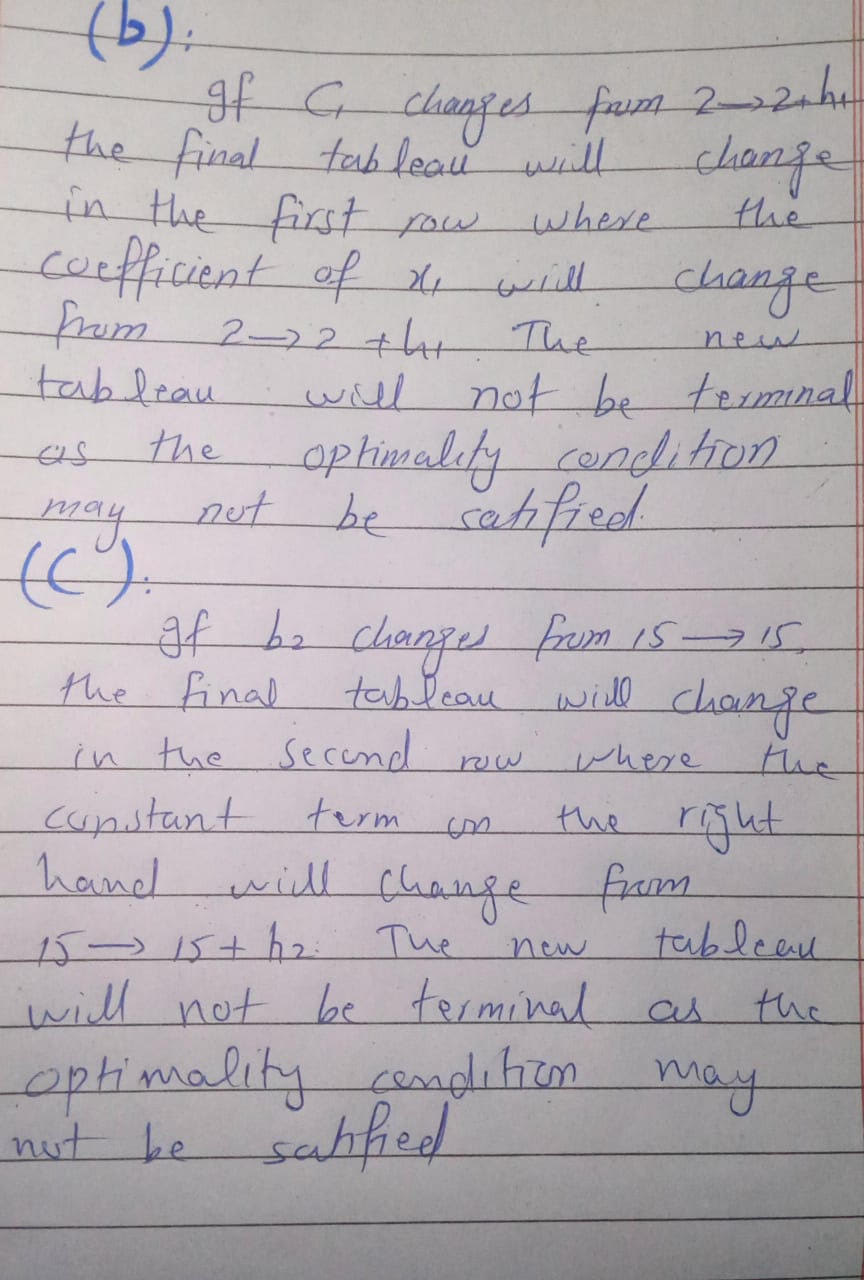 (b):
If C₁ changes from 2→2+h₁
the final tableau will change
in the first row where the
coefficient of x₁ will change
from 2→2 +h₁ The new
tableau will not be terminal
as the optimality condition
may not be satified.
(C):
If b₂ changes from 15→15,
the final tableau will change
in the second row where the
constant term on the right
hand will change from
15→15+h₂. The new tableau
will not be terminal as the
optimality condition may
not be satified